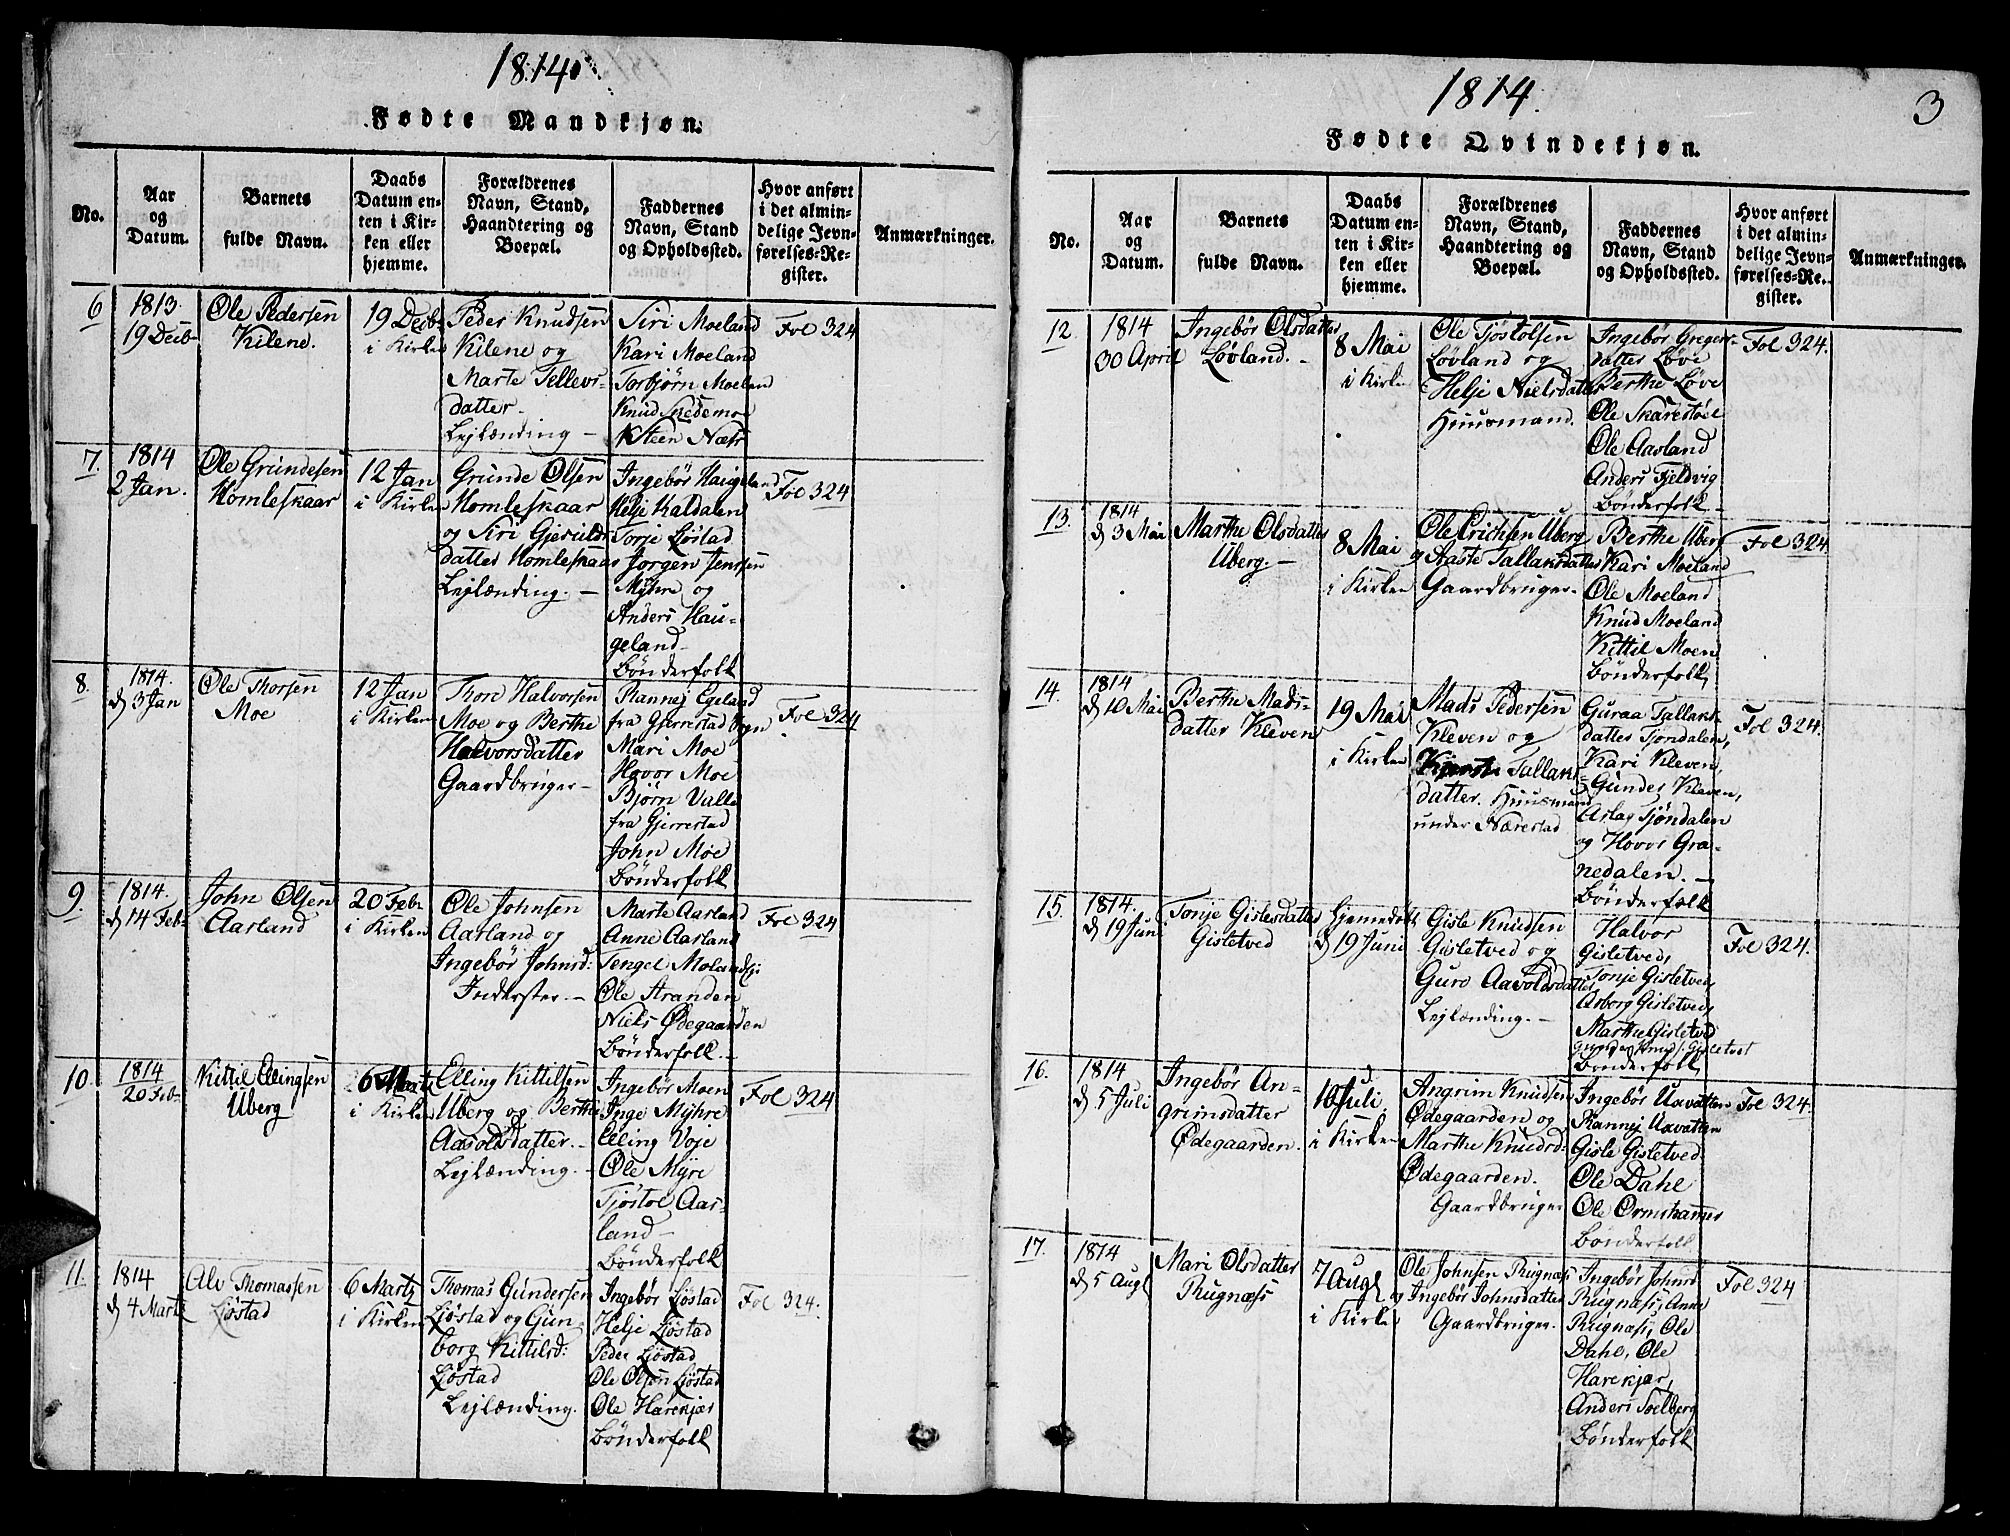 1814.
Fødte Mandkjøn.
No.
Aar
og
Datum.
Barnets
fulde Navn.
Daabs
Datum en-
ten i Kir-
ken eller
hjemme.
Forældrenes
Navn, Stand,
Haandtering og
Boepæl.
Faddernes
Navn, Stand
og Opholdssted.
Hvor anført
i det almin-
delige Jevn-
førelses-Re-
gister.
Anmærkninger.
6
1813.
19 Decb-
Ole Pedersen
Kilene.
19 Decb-
i Kirken
Peder Knudsen
Kilene og
Marte Tellevs-
datter.
Lejlænding -
Siri Moeland
Kari Moeland
Torbjørn Moelan
Knud Snedemoe
Steen Næss
Fol 324
7.
1814
2 Jan.
Ole Grundesen
Homleskaar
12 Jan
i Kirken
Grunde Olsen
Homleskaar
og Siri Gjerulds
datter Homleskaar
Lejlænding. -
Ingebør Haugeland
Helje Kaldalen
Torje Ljøstad
Jørgen Jenssen
Myhre og
Anders Hau-
geland-
Bønderfolk
Fol 324
8.
1814.
d 3 Jan
Ole Thorsen
Moe
12 Jan
i Kirken
Thore Halvorsen
Moe og Berthe
Halvorsdatter
Gaardbruger-
Rannej Egeland
fra Gjerrestad Sogn
Mari Moe
Hovor Moe
Bjørn Valle
fra Gjerrestad
John Moe
Bønderfolk
Fol 324
9
1814.
d 14 Feb-
John Olsen
Aarland
20 Feb-
i Kirken
Ole Johnsen
Aarland og
Ingebør Johnsd:
Inderster.-
Marte Aarland
Anne Aarland
Tengel Molands
Ole Stranden
Niels Ødegaarden
Bønderfolk.-
Fol 324
10
1814
20 Feb-
Kittil Ellingsen
Uberg
6 Martz
i Kirken
Elling Kittilsen
Uberg og Berthe
Aasoldsdatter.-
Lejlænding.-
Ingebør Moen
Inge Myhre
Elling Voje
Ole Myre
Tjøstol Aas-
land-
Bønderfolk
Fol 324
11.
1814
d 4 Marts
Alv Thomassen
Ljøstad
6 Martz
i Kirken
Thomas Gundersen
Ljøstad og Gun
borg Kittilsd:
Ljøstad
Lejlænding.
Ingebør Ljøstad
Helje Ljøstad
Peder Ljøstad
Ole Olsøn Ljøstad
Ole Harekjær
Bønderfolk
Fol 324.
1814.
3
Fødte Qvindekjøn.
No.
Aar
og
Datum.
Barnets
fulde Navn.
Daabs
Datum en-
ten i Kir-
ken eller
hjemme.
Forældrenes
Navn, Stand,
Haandtering og
Boepæl.
Faddernes
Navn, Stand
og Opholdssted.
Hvor anført
i det almin-
delige Jevn-
førelses-Re-
gister.
Anmærkninger.
12
1814
30 April
Ingebør Olsdatter
Løvland.-
8 Mai
i Kirken
Ole Tjøstolsen
Løvland og
Helje Nielsdatter
Huusmand.
Ingebør Gregers-
datter Løve
Berthe Løve
Ole Skarestøl
Ole Aasland
Anders Fjeldvig
Bønderfolk-
Fol 324.
13.
1814
d 3 Mai
Marthe Olsdatter
Uberg.-
8 Mai
i Kirken
Ole Erichsen Uberg
og Aaste Tallaksdatter
Gaardbruger.
Berthe Uberg
Kari Moeland
Ole Moeland
Knud Moeland
Kittil Moen
Bønderfolk,
Fol 324
14.
1814
d 10 Mai
Berthe Mads-
datter Kleven
19 Mai
i Kirken
Mads Pedersen
Kleven og
Tallaks-
datter. Huusmand
under Nærestad
Guraa Tallaks
datter Tjøndalen,
Kari Kleven,
Gunder Kleven,
Aslag Tjøndalen
og Hovor Gra-
nedalen.-
Bønderfolk
Fol 324.
15.
1814.
d 19 Juni
Tonje Gislesdatter
Gisletved
Hjemedøbt
d 19 Juni
Gisle Knudsen
Gisletved og
Guro Aavoldsdatter
Lejlænding.-
Halvor
Gisletved,
Tonje Gisletved,
Asborg Gisletved,
Marthe Gisletved
Gunder Knuds: Gisletvet
Bønderfolk
Fol 324.
16.
1814
d 5 Juli
Ingebør An-
grimsdatter
Ødegaarden.
10 Juli
i Kirken
Angrim Knudsen
Ødegaarden og
Marthe Knudsd:
Ødegaarden.
Gaardbruger
Ingebør Uxvatten
Rannej Uxvatten
Gisle Gisletved
Ole Dahl
Ole Ormshammer
Bønderfolk
Fol 324.
17.
1814
d 5 Augl
Mari Olsdatter
Rugnæss
7 Augl
i Kirken
Ole Johnsen Rugnæss
og Ingebør Johnsdatter
Gaardbruger.
Ingebør Johnsd
Rugnæss, Anne
Rugnæss, Ole
Dahl, Ole
Harekjær,
Anders Soelberg
Bønderfolk
Fol 324